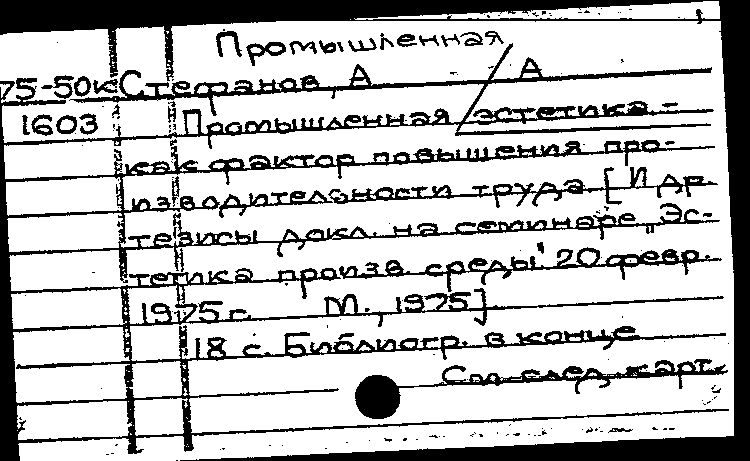 Промышленная
75-50к Стефанов, А / А
1603 Промышленная эстетика -
как фактор повышения про-
изводительности труда. [И др.
тезисы докл. на семинаре „Эс-
тетика произв. среды" 20 февр.
1975 г. М., 1975].
18 с. Библиогр. в конце
См. след. карт.